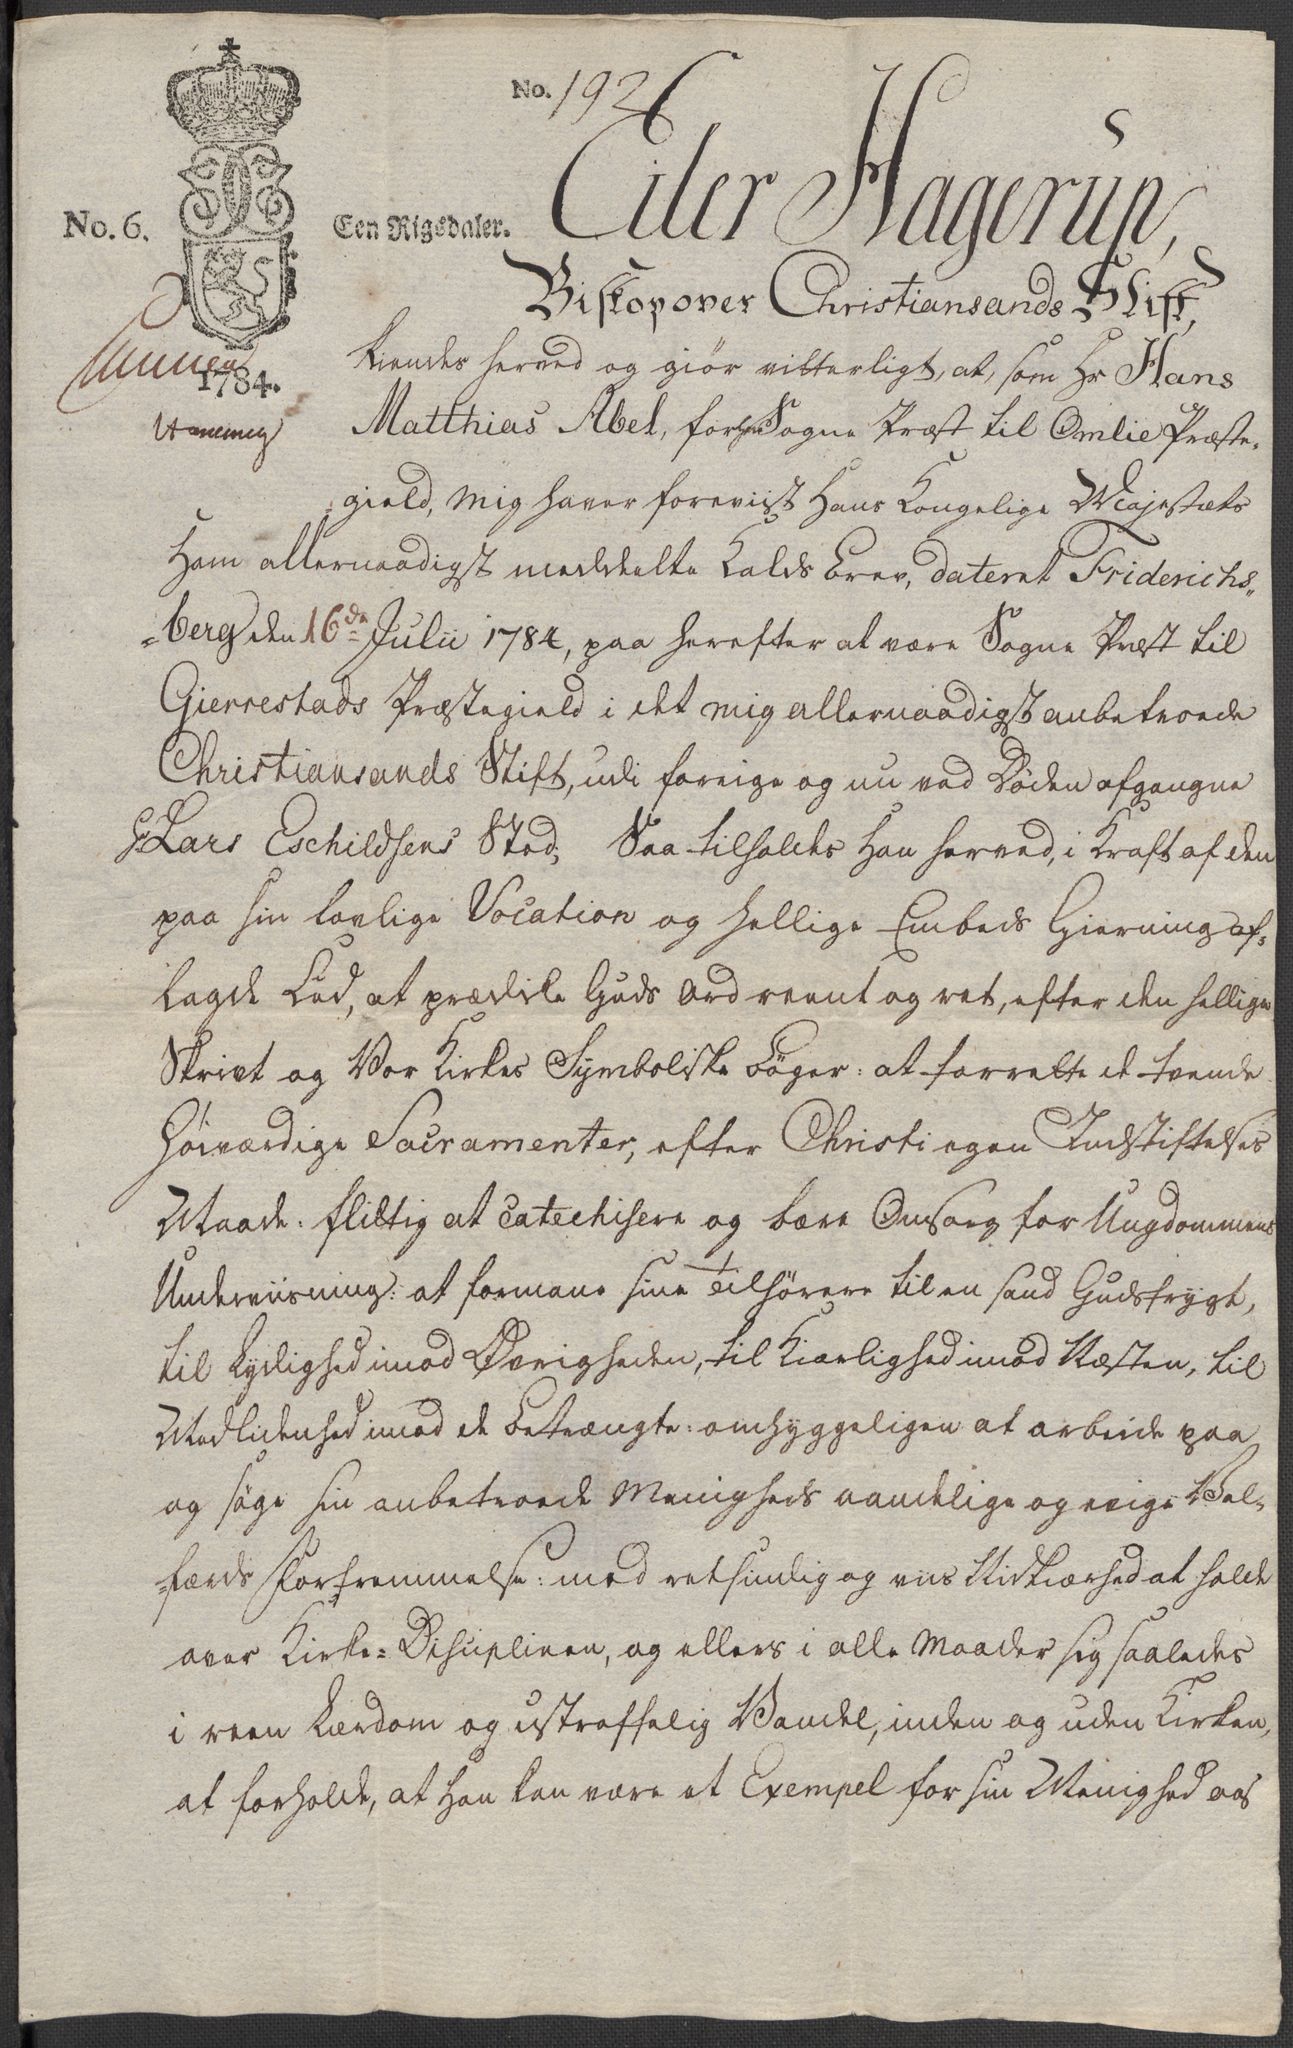 No. 192
No. 6.
Een Rigsdaler.
1784.
Eiler Hagerup,
Biskop over Christiansands Stift,
kiendes herved og giør vitterligt, at, som Hr Hans
Matthias Abel, forhen Sogne Præst til Omlie Præste-
gield, mig haver foreviist Hans Kongelige Majestæts
Ham allernaadigst meddeelte Kalds Brev, dateret Friderichs-
-berg den 16de Julii 1784, paa herefter at være Sogne Præst til
Gierrestads Præstegield i det mig allernaadigst anbetroede
Christiansands Stift, udi forrige og nu ved Døden afgangne
Hr Lars Eschildsens Sted, Saa tilholdes Han herved, i Kraft af den
paa sin lovlige Vocation og hellige Embeds Gierning af-
lagde Eed, at prædike Guds Ord reent og ret, efter den hellige
Skrivt og Vor Kirkes Symboliske Bøger: at forrette de tvende
høiværdige Sacramenter, efter Christi egen Indstiftelses
Maade: flittig at catechisere og bære Omsorg for Ungdommens
Underviisning: at formane sine Tilhørere til en sand Gudsfrygt,
til Lydighed imod Øvrigheden, til Kierlighed imod Næsten, til
Medlidenhed imod de betrængte: omhyggeligen at arbeide paa
og søge sin anbetroede Menigheds aandelige og evige Vel-
-færds Forfremmelse: med retsindig og viis Nidkierhed at holde
over Kirke-Disciplinen, og ellers i alle Maader sig saaledes
i reen Lærdom og ustraffelig Vandel, inden og uden Kirken,
at forholde, at Han kan være et Exempel for sin Menighed og